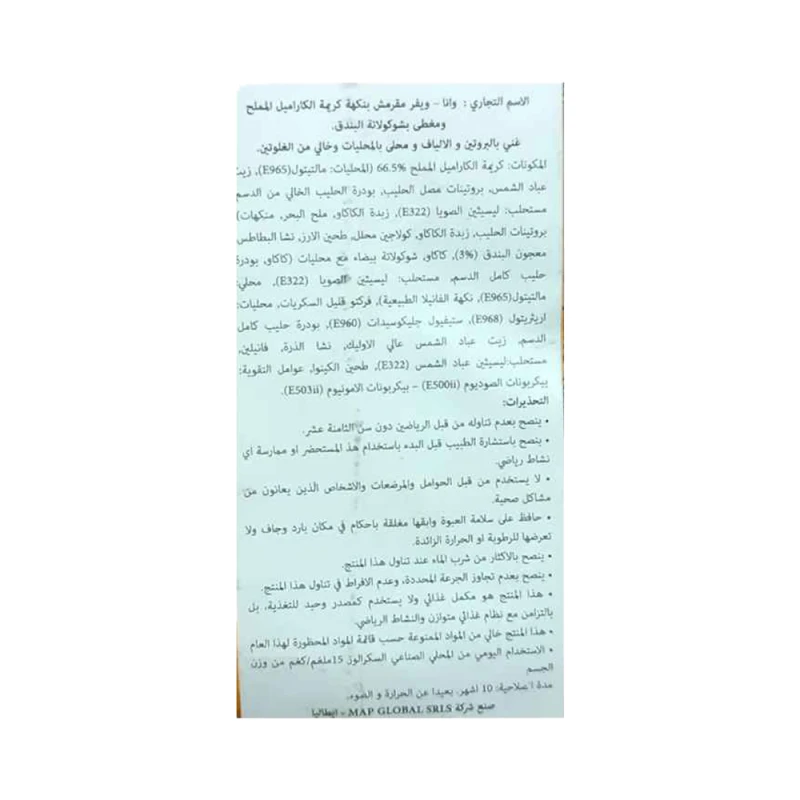 الاسم التجاري : وانا – ويفر مقرمش بنكهة كريمة الكاراميل المملح
ومغطى بشوكولاتة البندق.
غني بالبروتين و الالياف و محلى بالمحليات وخالي من الغلوتين.
المكونات: كريمة الكاراميل المملح 66.5% (المحليات: مالتيتول(E965), زيت
عباد الشمس, بروتينات مصل الحليب, بودرة الحليب الخالي من الدسم
مستحلب: ليسيثين الصويا (E322), زبدة الكاكاو, ملح البحر, منكهات)
بروتينات الحليب, زبدة الكاكاو, كولاجين محلل, طحين الارز, نشا البطاطس,
معجون البندق (3%), كاكاو, شوكولاتة بيضاء مع محليات (كاكاو, بودرة
حليب كامل الدسم, مستحلب: ليسيثين الصويا (E322), محلي:
مالتيتول(E965), نكهة الفانيلا الطبيعية), فركتو قليل السكريات, محليات:
اريثريتول (E968), ستيفيول جليكوسيدات (E960), بودرة حليب كامل
الدسم, زيت عباد الشمس عالي الاوليك, نشا الذرة, فانيلين,
مستحلب:ليسيثين عباد الشمس (E322), طحين الكينوا, عوامل التقوية:
بيكربونات الصوديوم (E500ii) – بيكربونات الامونيوم (E503ii).
التحذيرات:
• ينصح بعدم تناوله من قبل الرياضين دون سن الثامنة عشر.
• ينصح باستشارة الطبيب قبل البدء باستخدام هذ المستحضر او ممارسة اي
نشاط رياضي.
• لا يستخدم من قبل الحوامل والمرضعات والاشخاص الذين يعانون من
مشاكل صحية.
• حافظ على سلامة العبوة وابقها مغلقة باحكام في مكان بارد وجاف ولا
تعرضها للرطوبة او الحرارة الزائدة.
• ينصح بالاكثار من شرب الماء عند تناول هذا المنتج.
• ينصح بعدم تجاوز الجرعة المحددة, وعدم الافراط في تناول هذا المنتج.
• هذا المنتج هو مكمل غذائي ولا يستخدم كمصدر وحيد للتغذية, بل
بالتزامن مع نظام غذائي متوازن والنشاط الرياضي.
• هذا المنتج خالي من المواد الممنوعة حسب قائمة المواد المحظورة لهذا العام
• الاستخدام اليومي من المحلي الصناعي السكرالوز 15ملغم/كغم من وزن
الجسم
مدة الصلاحية: 10 اشهر. بعيدا عن الحرارة و الضوء.
صنع شركة MAP GLOBAL SRLS – ايطاليا